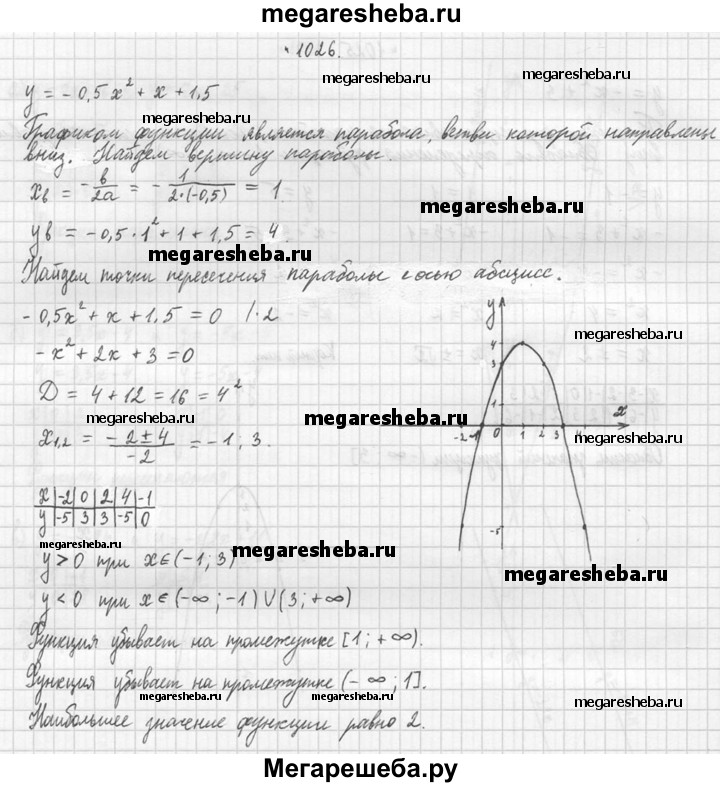 megaresheba.ru
1026.
y = -0,5x² + x + 1,5
megaresheba.ru
megaresheba.ru
Графиком функции является парабола, ветви которой направлены
вниз. Найдем вершину параболы.
megaresheba.ru
xв = -в/2a = -1/2·(-0,5) = 1
megaresheba.ru
yв = -0,5·1² + 1 + 1,5 = 4.
megaresheba.ru
Найдем точки пересечения параболы с осью абсцисс.
-0,5x² + x + 1,5 = 0 /·2
megaresheba.ru
-x² + 2x + 3 = 0
D = 4 + 12 = 16 = 4²
megaresheba.ru
megaresheba.ru
megaresheba.ru
x1,2 = -2±4/-2 = -1; 3.
y
4
3
1
x
-2 -1 0 1 2 3 4
-5
x|-2|0|2|4|-1
y|-5|3|3|-5|0
megaresheba.ru
megaresheba.ru
y > 0 при x∈(-1; 3)
megaresheba.ru
y < 0 при x∈(-∞; -1)∪(3; +∞)
Функция убывает на промежутке [1; +∞).
Функция убывает на промежутке (-∞; 1].
megaresheba.ru
megaresheba.ru
megaresheba.ru
Наибольшее значение функции равно 2.
Мегарешеба.ру